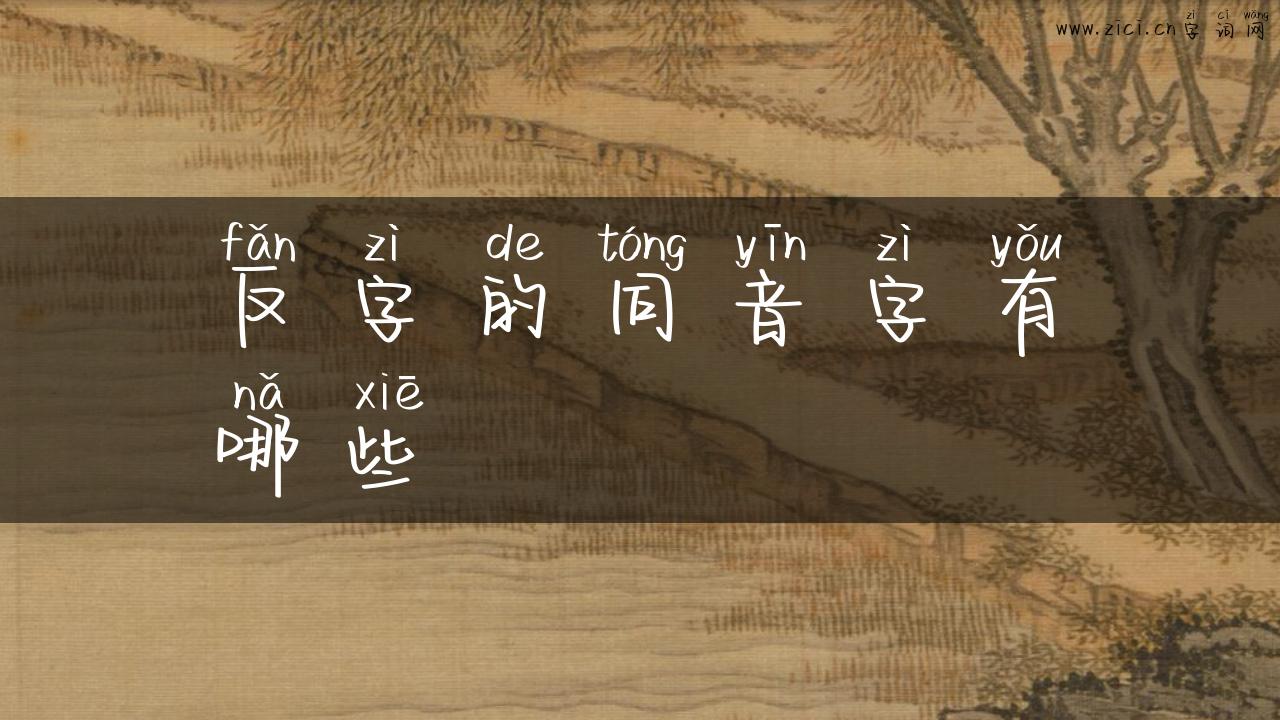 zì cí wǎng
www.zici.cn字词网
fǎn zì de tóng yīn zì yǒu
反字的同音字有
nǎ xiē
哪些